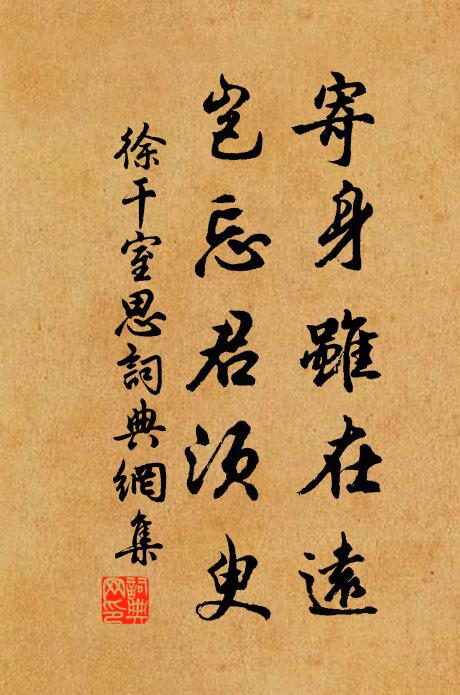 寄身雖在遠
豈忘君須臾
徐干室思詞典網集
詞典網印